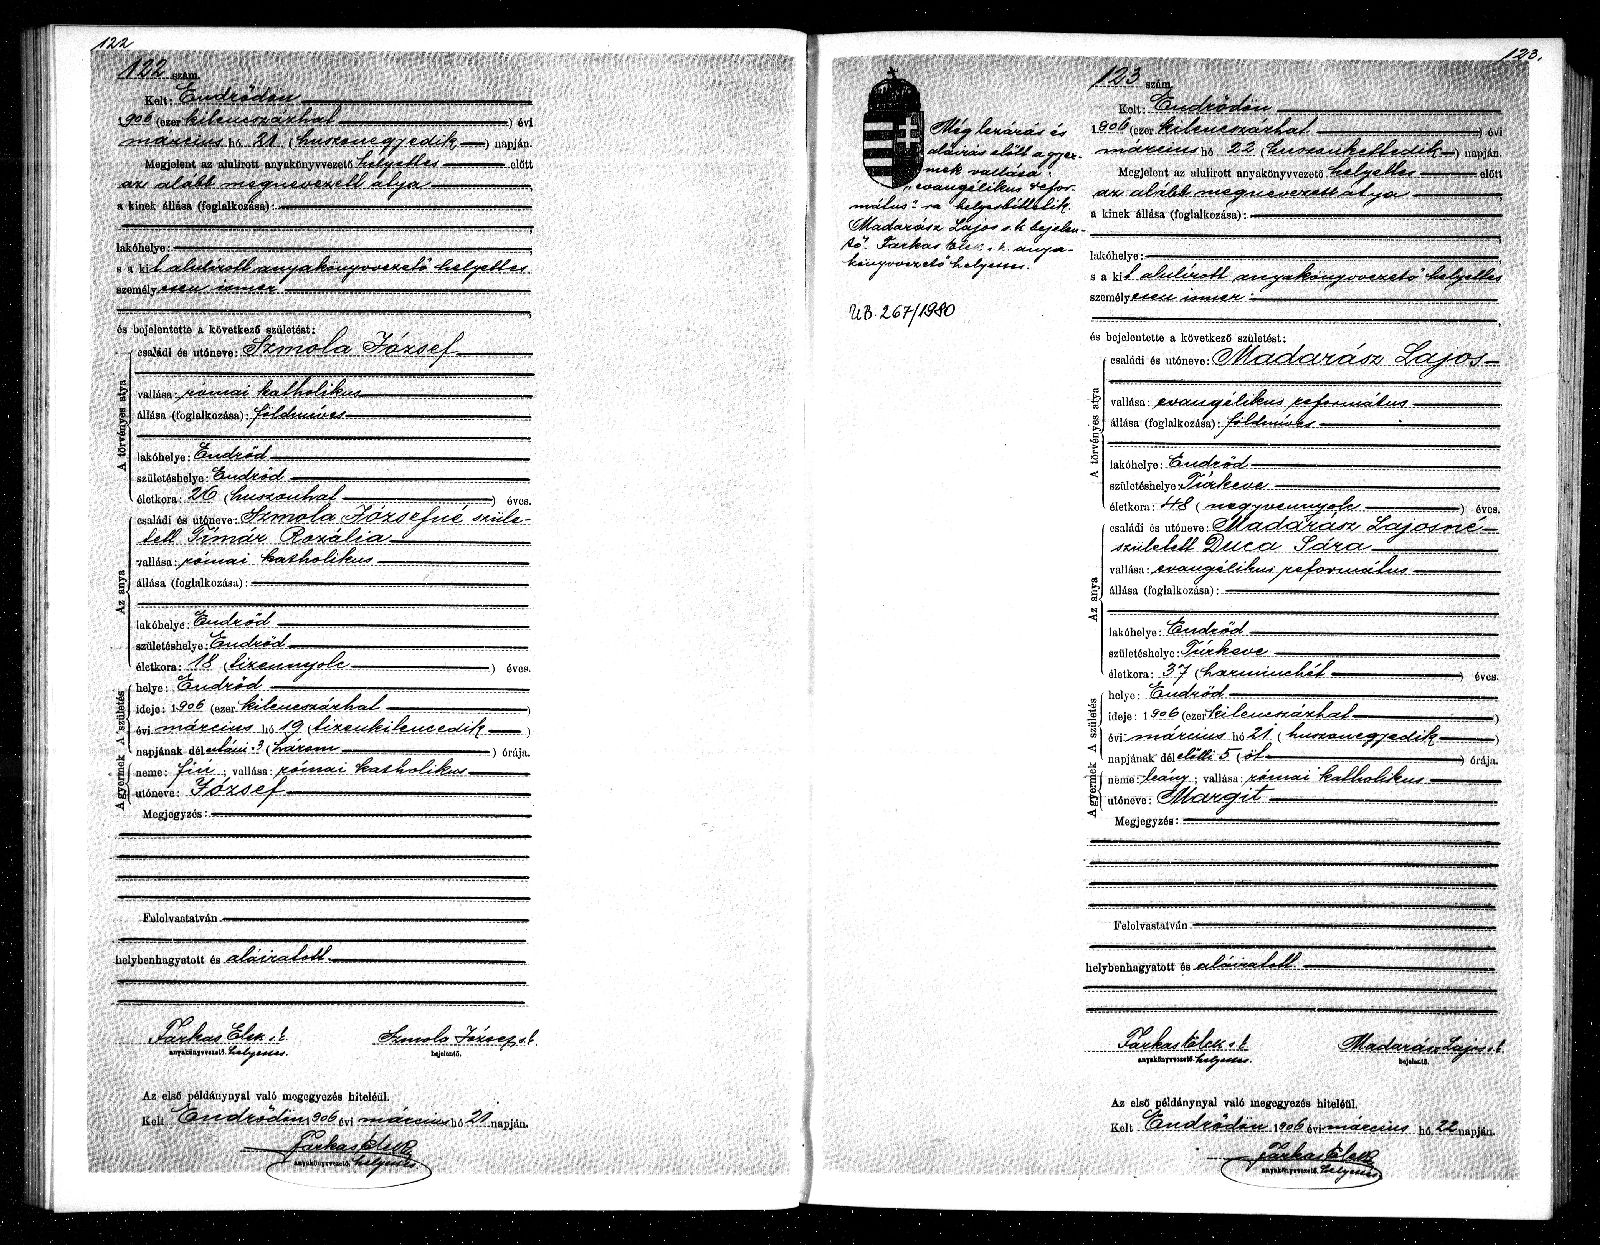 122
122 szám.
Kelt: Endrődön
1906 (ezer kilenczszázhat ) évi
március hó 21 (huszonegyedik ) napján.
Megjelent az alulirott anyakönyvvezető helyettes előtt
az alább megnevezett atya
a kinek állása (foglalkozása):
lakóhelye:
s a kit alulírott anyakönyvvezető helyettes
személyesen ismer
és bejelentette a következő születést:
A törvényes atya
családi és utóneve: Szmola József
vallása: római katholikus
állása (foglalkozása): földmíves
lakóhelye: Endrőd
születéshelye: Endrőd
életkora: 26 (huszonhat ) éves.
Az anya
családi és utóneve: Szmola Józsefné szüle-
tett Tímár Rozália
vallása: római katholikus
állása (foglalkozása):
lakóhelye: Endrőd
születéshelye: Endrőd
életkora: 18 (tizennyolc ) éves.
A születés
helye: Endrőd
ideje: 1906 (ezer kilenczszázhat )
évi március hó 19 (tizenkilencedik )
napjának délutáni 3 (három ) órája.
A gyermek
neme: fiú; vallása: római katholikus
utóneve: József
Megjegyzés:
Felolvastatván
helybenhagyatott és aláiratott.
Farkas Elek s. k. Szmola József s. k.
anyakönyvvezető helyettes. bejelentő.
Az első példánynyal való megegyezés hiteléül.
Kelt Endrődön 1906 évi március hó 21 napján.
Farkas Elek
anyakönyvvezető helyettes
123.
Még lezárás és
aláírás előtt a gyer-
mek vallása:
"evangélikus refor-
mátus"-ra helyesbíttetik.
Madarász Lajos s. k. bejelen-
tő. Farkas Elek s. k. anya-
könyvvezető helyettes.
UB. 267/1980
123 szám.
Kelt: Endrődön
1906 (ezer kilenczszázhat ) évi
március hó 22 (huszonkettedik ) napján.
Megjelent az alulirott anyakönyvvezető helyettes előtt
az alább megnevezett atya
a kinek állása (foglalkozása):
lakóhelye:
s a kit alulírott anyakönyvvezető helyettes
személyesen ismer
és bejelentette a következő születést:
A törvényes atya
családi és utóneve: Madarász Lajos
vallása: evangélikus református
állása (foglalkozása): földmíves
lakóhelye: Endrőd
születéshelye: Túrkeve
életkora: 48 (negyvennyolc ) éves.
Az anya
családi és utóneve: Madarász Lajosné
született Duca Sára
vallása: evangélikus református
állása (foglalkozása):
lakóhelye: Endrőd
születéshelye: Túrkeve
életkora: 37 (harminchét ) éves.
A születés
helye: Endrőd
ideje: 1906 (ezer kilenczszázhat )
évi március hó 21 (huszonegyedik )
napjának délelőtti 5 (öt ) órája.
A gyermek
neme: leány; vallása: római katholikus
utóneve: Margit
Megjegyzés:
Felolvastatván
helybenhagyatott és aláiratott
Farkas Elek s. k. Madarász Lajos s. k.
anyakönyvvezető helyettes. bejelentő.
Az első példánynyal való megegyezés hiteléül.
Kelt Endrődön 1906 évi március hó 22 napján.
Farkas Elek
anyakönyvvezető helyettes